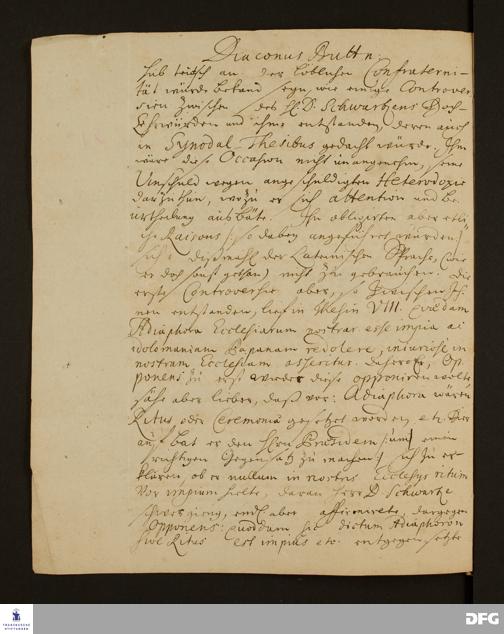 Diaconus Buttn.
hub teutsch an, der löblichen Confraterni-
tät würde bekand seyn, wie einige Controver
sien zwischen des H. D. Schwartzens Hoch-
Ehrwürden und ihme entstanden, deren auch
in Synodal-Thesibus gedacht würde. Ihm
wäre diese Occasion nicht unangenehm, seine
Unschuld wegen angeschuldigten Heterodoxie
darzuthun, wozu er sich attention und be-
urtheilung ausbäte. Ihn obligirten aber etli
che Raisons (so dabey angeführet wurden)
sich dißmahl der Lateinischen Sprache, (wie
er doch sonst gethan) nicht zu gebrauchen. Die
erste Controversie aber, so zwischen Ih-
nen entstanden, lief in Thesin VIII. Quaedam
Adiaphora Ecclesiarum nostrar. esse impia ac
idolomaniam Papanam redolere, injuriose in
nostram Ecclesiam asseritur. Opponens
zu erst wieder diese opponiren wolte
sähe aber lieber, daß vor: Adiaphora wären
Ritus oder Ceremoniae gesetzet worden, etc. Hier
auf bat er den Hrn Praesidem (um einen
richtigen Gegensatz zu machen) sich zu er-
klären, ob er nullum in nostris Ecclesys ritum
vor impium hielte, daran Herr D Schwartze
endl. aber affirmirete, dargegen
Opponens: quoddam sic dictum Adiaphoron
sive Ritus est impius etc. entgegen setzte
TRANCKESCHE STIFTUNGEN
DFG